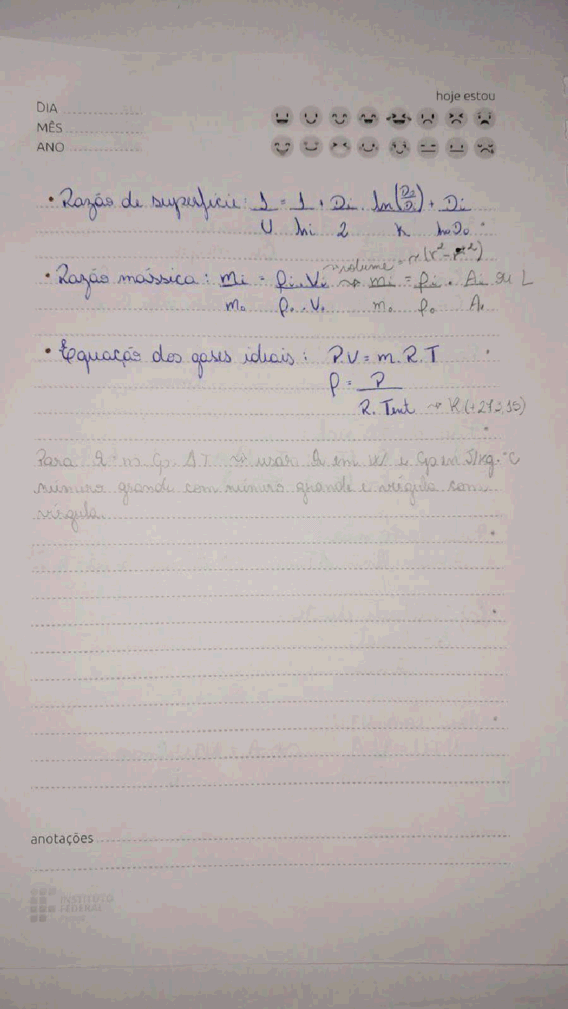 hoje estou
DIA
MÊS
ANO
• Razão de superfície: 1/U = 1/hi + Di/2 . ln(Do/Di)/K + Di/ho.Do
• Razão mássica: mi/mo = ρi.Vi/ρo.Vo → mi/mo = ρi/ρo . Ai/Ao ou L
volume = π(r²-r²)
• Equação dos gases ideais: P.V = m.R.T
ρ = P/R.Tent → K (+273,15)
Para Q = m.Cp.ΔT → usar Q em W e Cp em J/kg.°C
número grande com número grande e vírgula com
vírgula.
anotações
INSTITUTO
FEDERAL